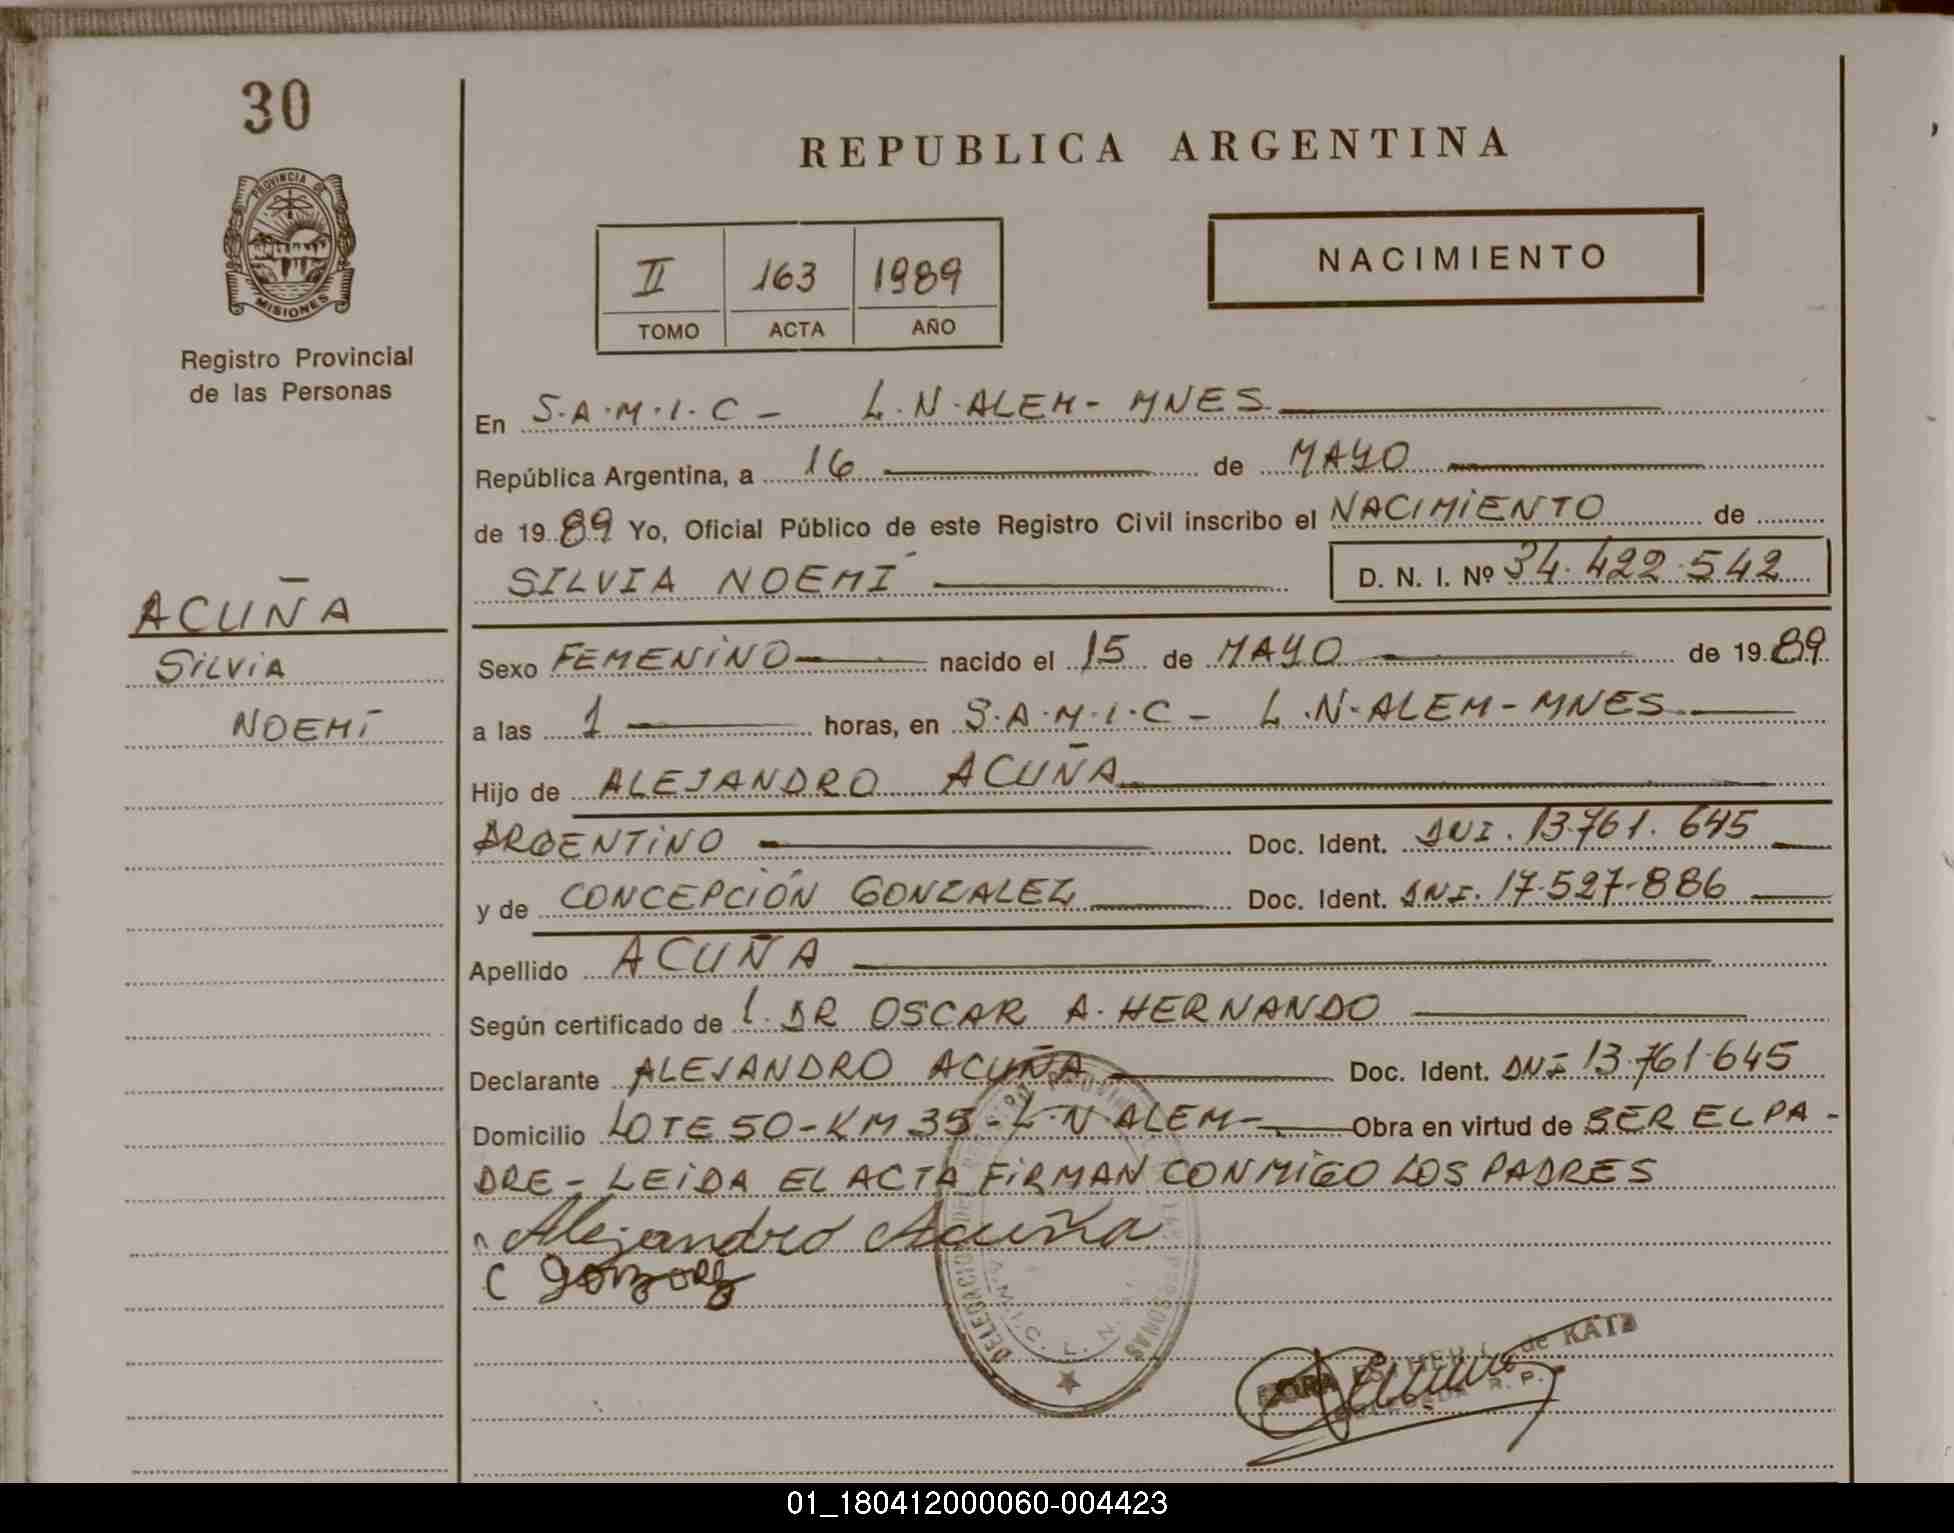 30
PROVINCIA DE
MISIONES
Registro Provincial
de las Personas
REPUBLICA ARGENTINA
II 163 1989
TOMO ACTA AÑO
NACIMIENTO
En S.A.M.I.C - L.N.ALEM- MNES
República Argentina, a 16 de MAYO
de 1989 Yo, Oficial Público de este Registro Civil inscribo el NACIMIENTO de
SILVIA NOEMÍ D. N. I. Nº 34.422.542
ACUÑA
SILVIA
NOEMÍ
Sexo FEMENINO nacido el 15 de MAYO de 1989
a las 1 horas, en S.A.M.I.C - L.N.ALEM-MNES
Hijo de ALEJANDRO ACUÑA
ARGENTINO Doc. Ident. DNI. 13.761.645
y de CONCEPCIÓN GONZALEZ Doc. Ident. DNI. 17.527.886
Apellido ACUÑA
Según certificado de L. DR OSCAR A. HERNANDO
Declarante ALEJANDRO ACUÑA Doc. Ident. DNI 13.761.645
Domicilio LOTE 50-KM 35-L.N.ALEM- Obra en virtud de SER EL PA-
DRE - LEIDA EL ACTA FIRMAN CONMIGO LOS PADRES
Alejandro Acuña
C
de KATZ
R. P.
S.A.M.I.C. L. N.
01_180412000060-004423